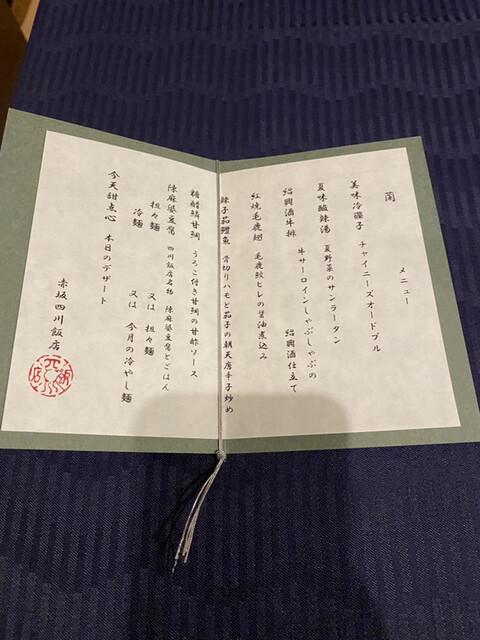 メニュー
蘭
美味冷碟子 チャイニーズオードブル
夏味酸辣湯 夏野菜のサンラータン
紹興酒牛排 牛サーロインしゃぶしゃぶの
紹興酒仕立て
紅焼毛鹿翅 毛鹿鮫ヒレの醤油煮込み
辣子茄鱧魚 骨切りハモと茄子の朝天唐辛子炒め
糖醋鱗甘鯛 うろこ付き甘鯛の甘酢ソース
陳麻婆豆腐 四川飯店名物 陳麻婆豆腐とごはん
担々麺 又は 担々麺
冷麺 又は 今月の冷やし麺
今天甜点心 本日のデザート
赤坂四川飯店